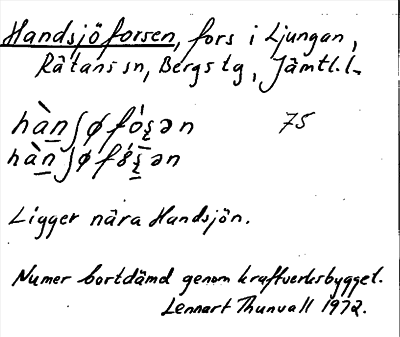 Handsjöforsen, fors i Ljungan,
Rätans sn, Bergs tg, Jämtl. l.
hàn̲ʃøfós̲ən 75
hàn̲ʃøfós̲ən
Ligger nära Handsjön.
Numer bortdämd genom kraftverksbygget.
Lennart Thunvall 1972.